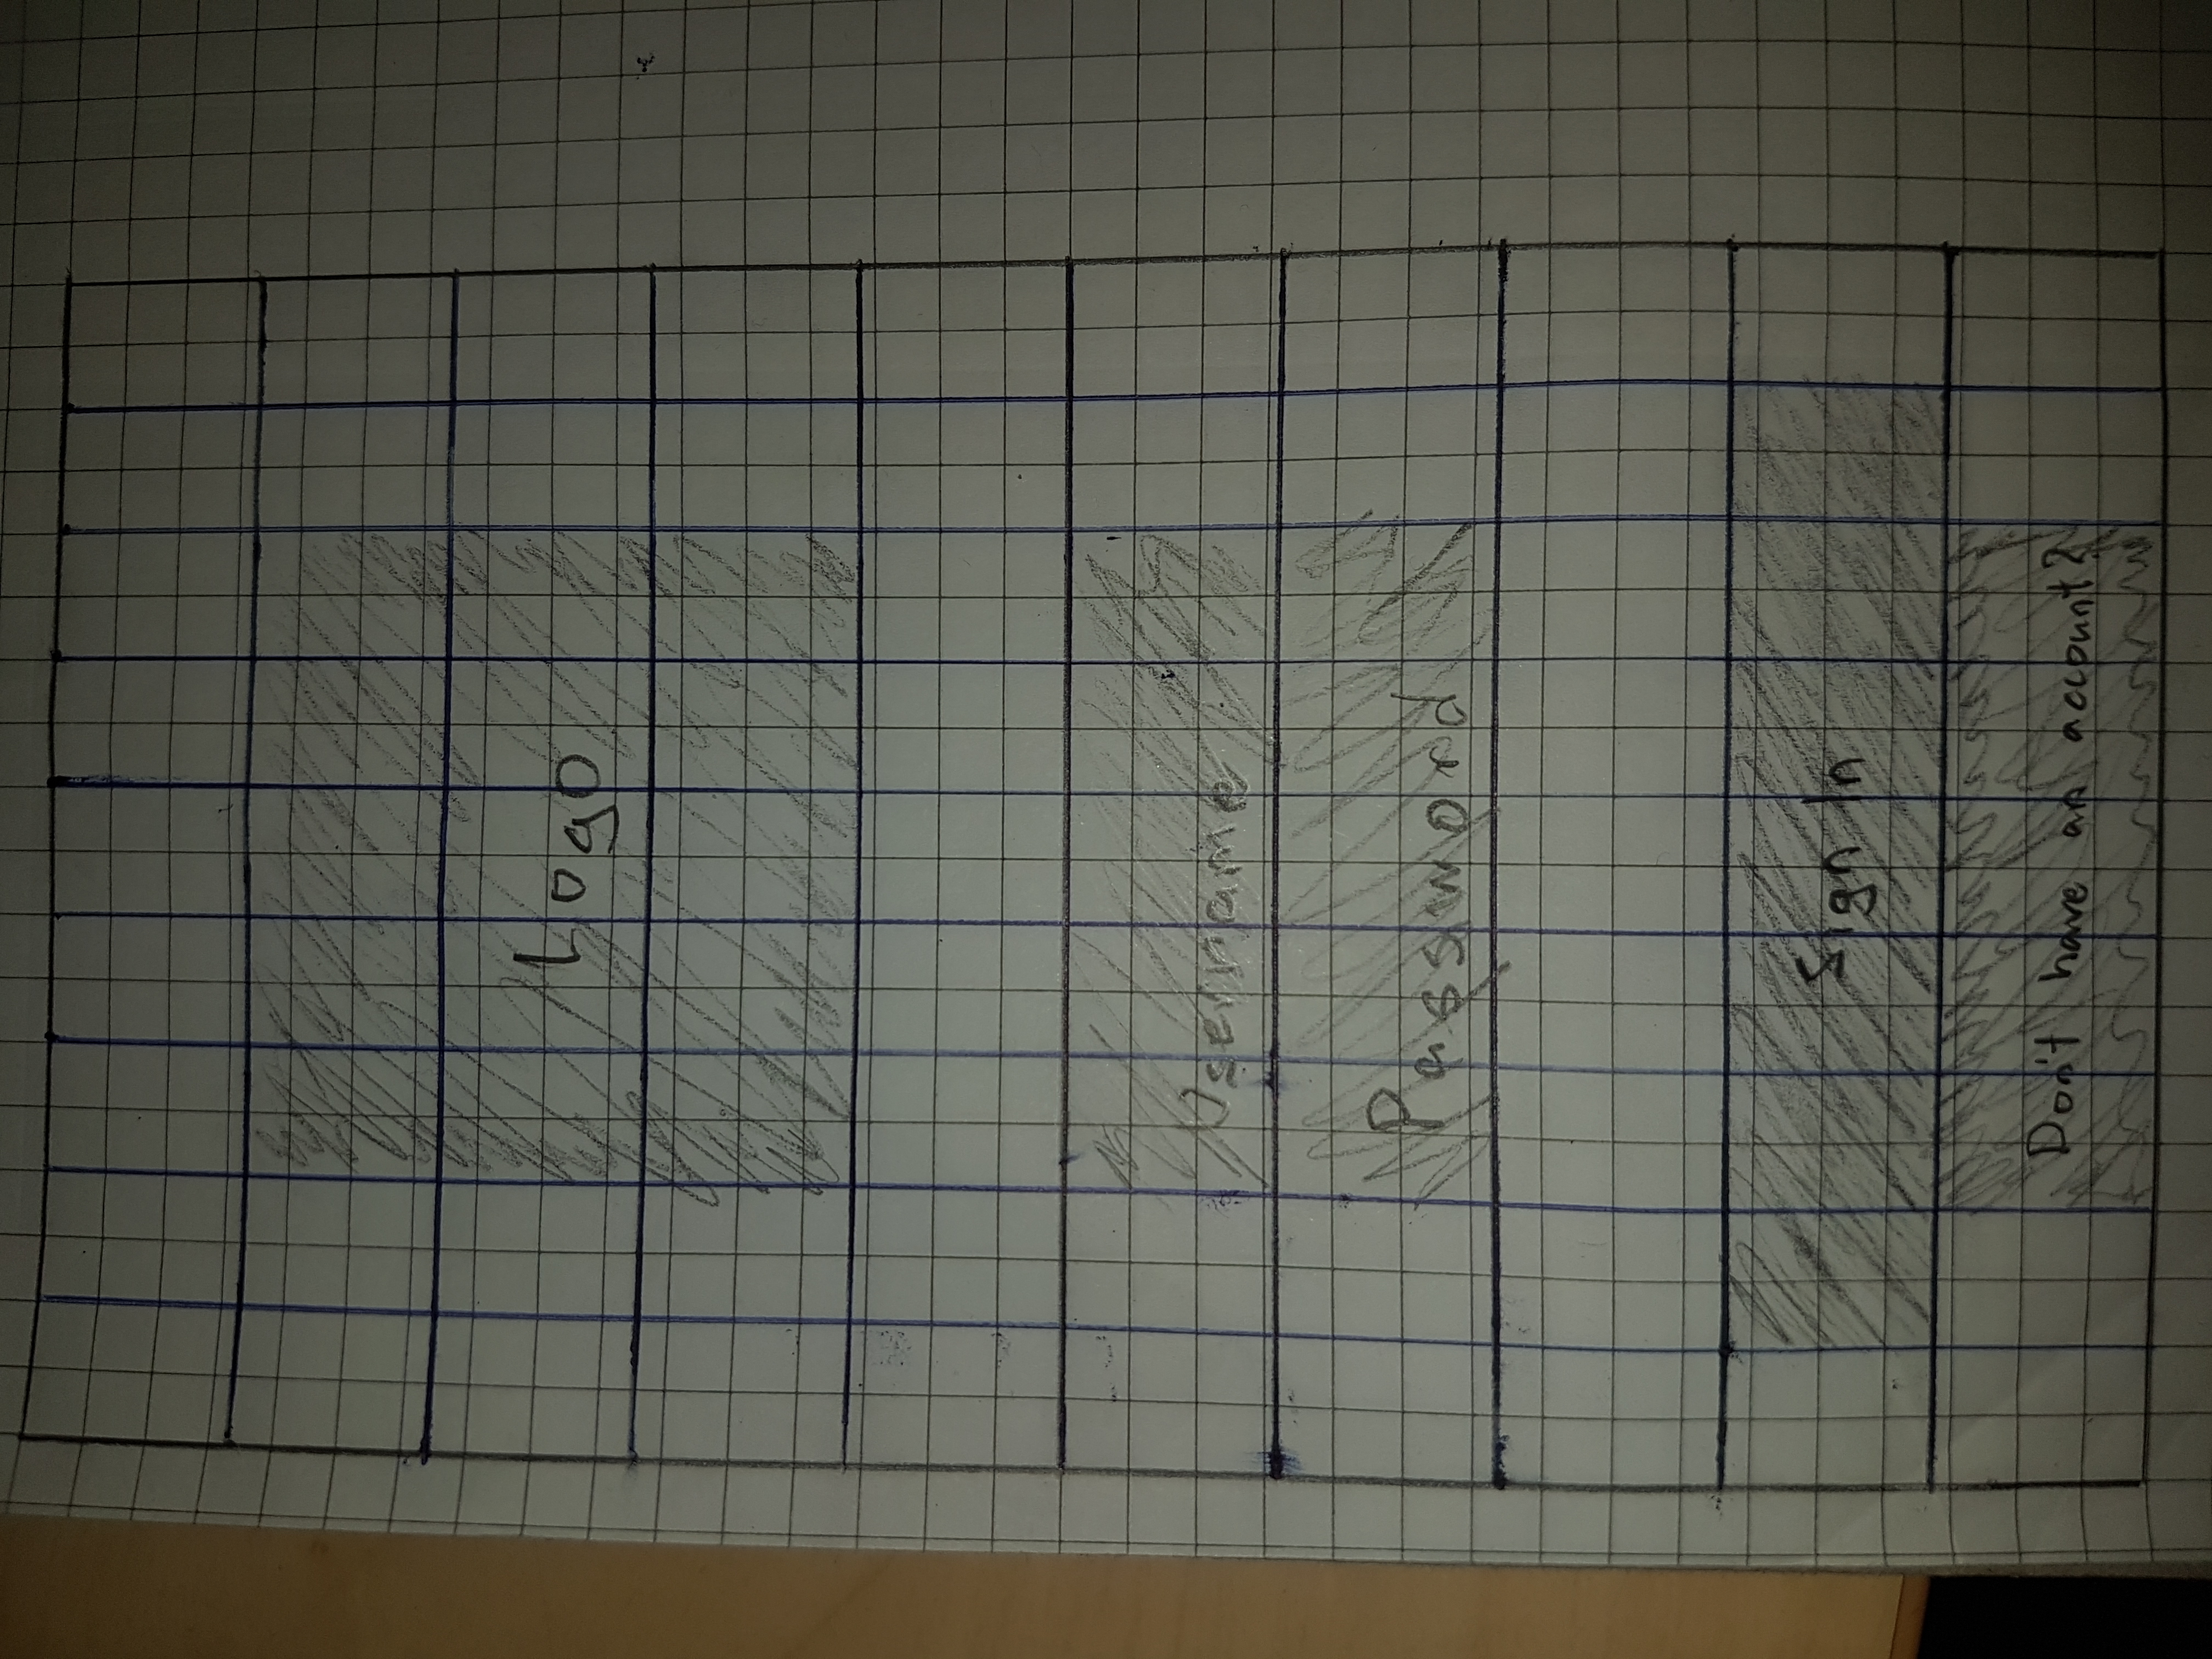 Logo
Username
Password
Sign In
Don't have an account?